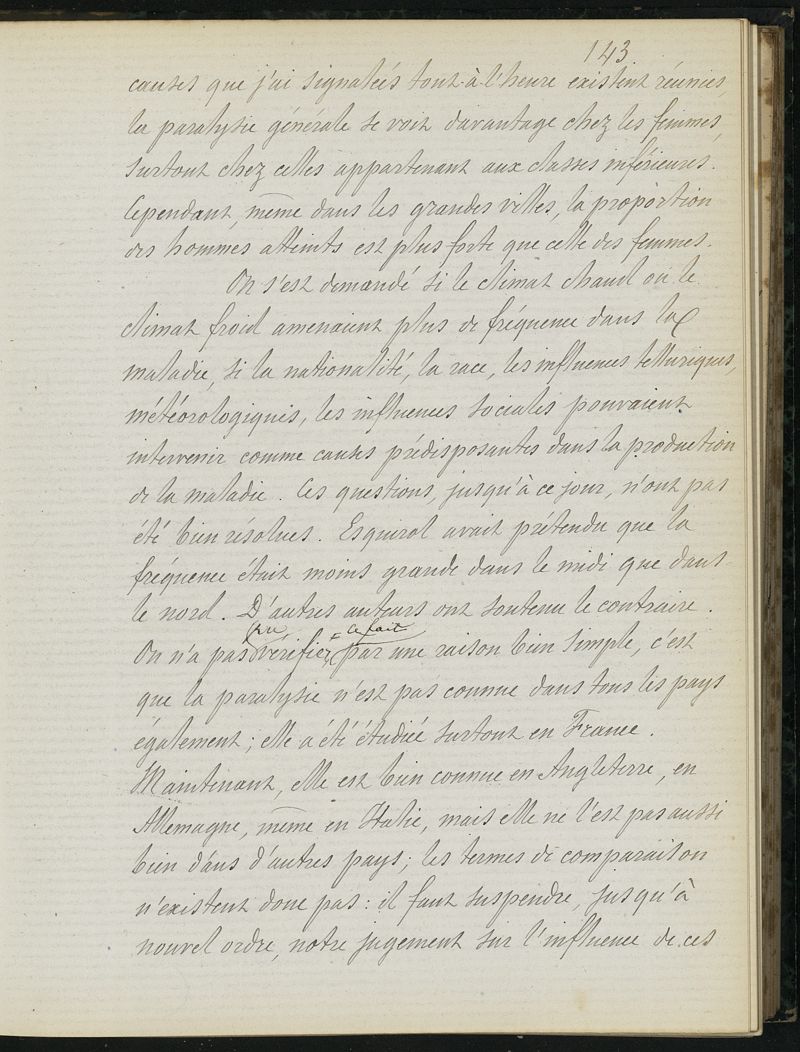 143
causes que j'ai signalées tout-à-l'heure existent réunies,
la paralysie générale se voit davantage chez les femmes,
surtout chez celles appartenant aux classes inférieures.
Cependant, même dans les grandes villes, la proportion
des hommes atteints est plus forte que celle des femmes.
On s'est demandé si le climat chaud ou le
climat froid amenaient plus de fréquence dans la
maladie, si la nationalité, la race, les influences telluriques,
météorologiques, les influences sociales pouvaient
intervenir comme causes prédisposantes dans la production
de la maladie. Ces questions, jusqu'à ce jour, n'ont pas
été bien résolues. Esquirol avait prétendu que la
fréquence était moins grande dans le midi que dans
le nord. D'autres auteurs ont soutenu le contraire.
pu ce fait
On n'a pas vérifier, par une raison bien simple, c'est
que la paralysie n'est pas connue dans tous les pays
également; elle a été étudiée surtout en France.
Maintenant, elle est bien connue en Angleterre, en
Allemagne, même en Italie, mais elle ne l'est pas aussi
bien dans d'autres pays; les termes de comparaison
n'existent donc pas: il faut suspendre, jusqu'à
nouvel ordre, notre jugement sur l'influence de ces